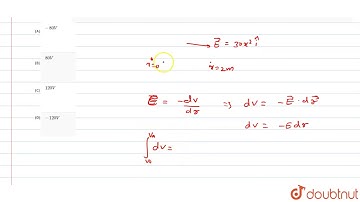 (A) − 80V
(B) 80V
(C) 120V
(D) − 120V
E⃗ = 30x² î
x=0
x=2m
E⃗ = −dv/dr ⇒ dv = −E⃗·dr⃗
dv = −Edr
∫ dv =
doubtnut